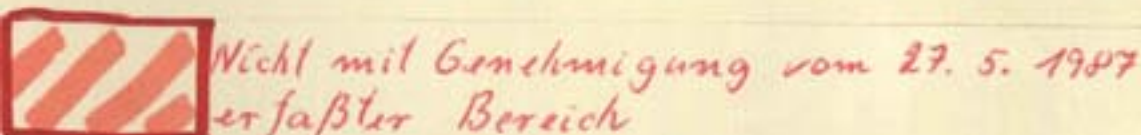 Nicht mit Genehmigung vom 27. 5. 1987
erfaßter Bereich